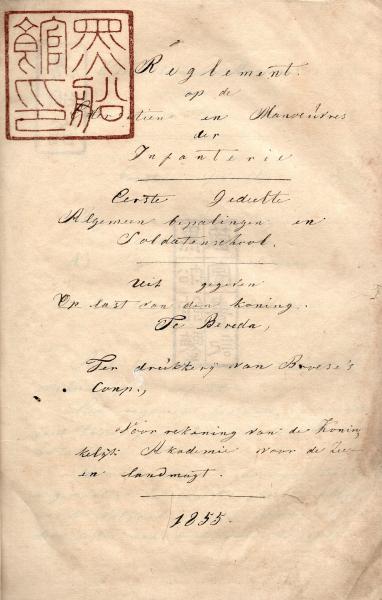 Reglement.
op de
en Manoeuvres
der
Infanterie
Eerste Gedeelte
Algemeen bepalingen en
Soldatenschool.
Uit gegeven
Op last van den koning.
Te Bereda,
Ter drukkerij van Broese's
Comp.,
Voor rekening van de Konin
kelijk Akademie voor de Zee
en landmagt.
1855.